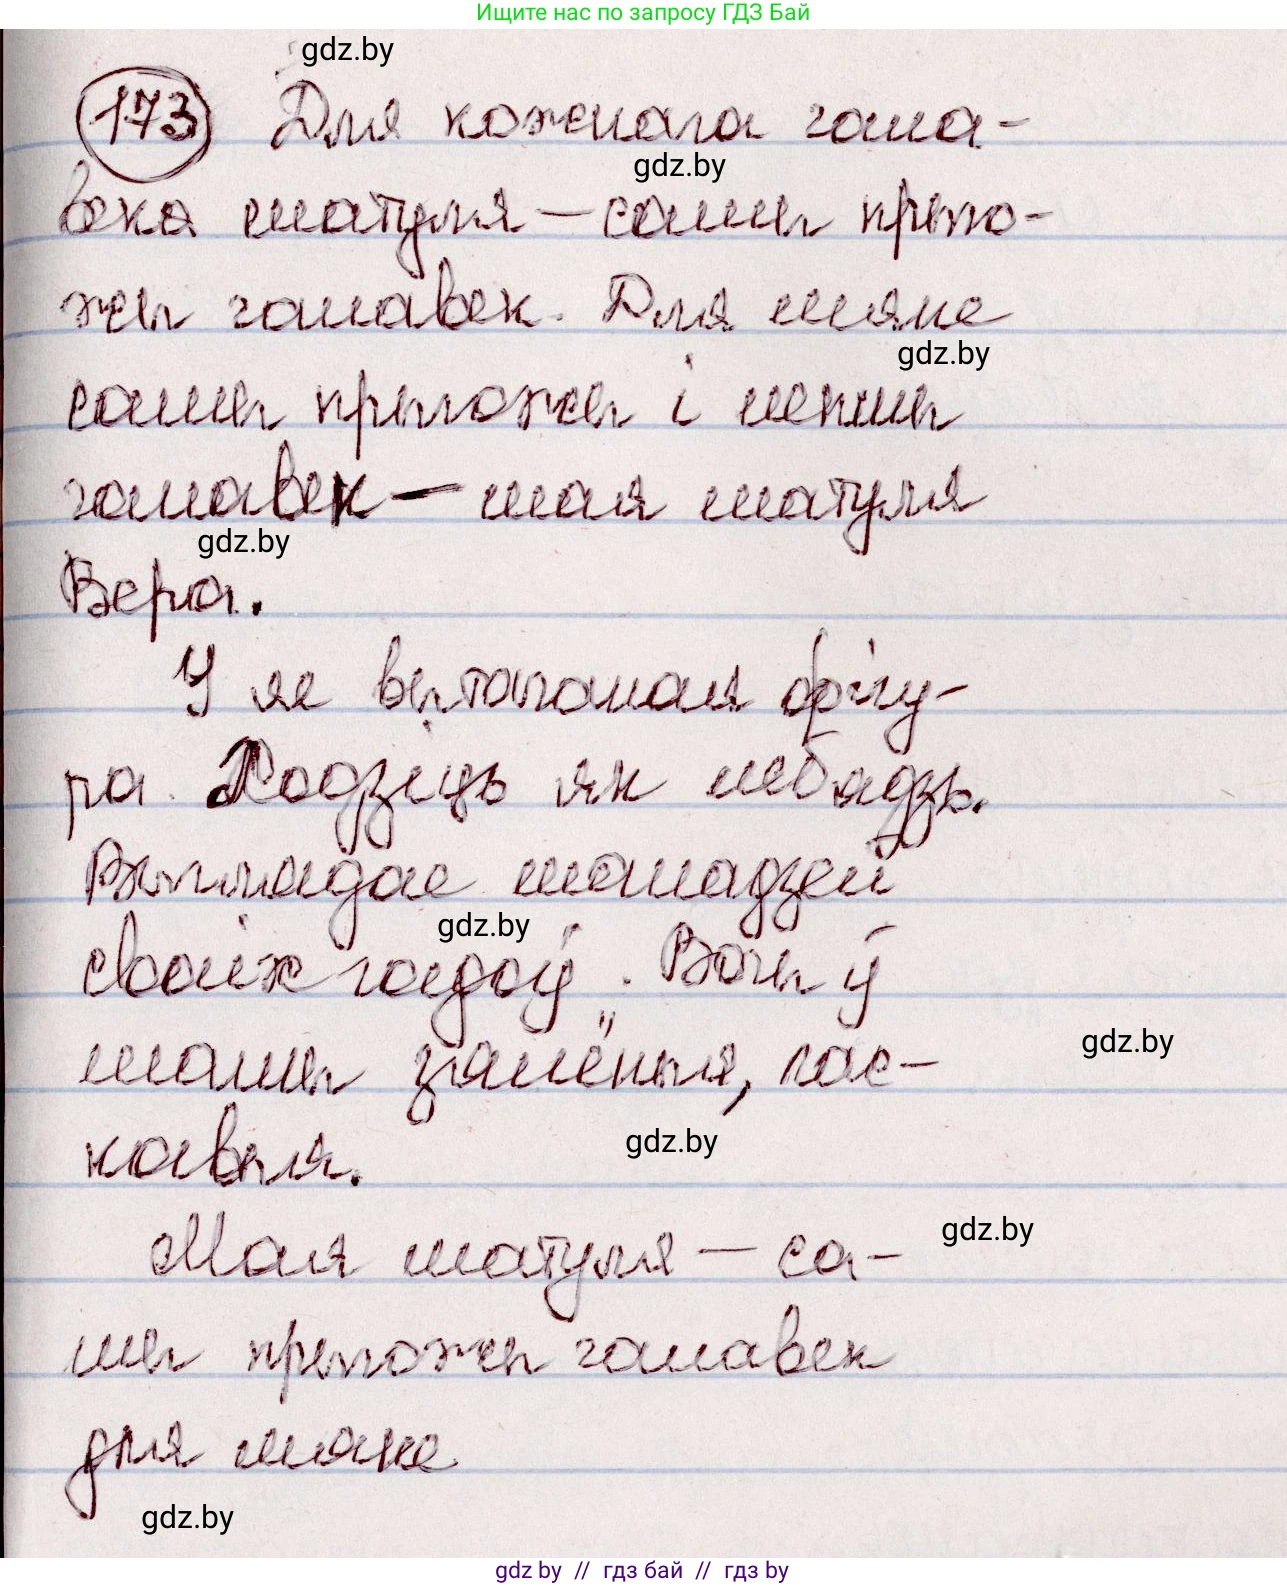 Ищите нас по запросу ГДЗ Бай
gdz.by
173 Для кожнага чала-
gdz.by
века матуля – самы прыго-
жы чалавек. Для мяне
gdz.by
самы прыгожы і мепшы
чалавек – мая матуля
gdz.by
Вера.
У яе вытанчаная фігу-
ра. Ходзіць як лебядзь.
Выглядае маладзей
gdz.by
сваіх гадоў. Вочы ў
gdz.by
мамы зялёныя, лас-
gdz.by
кавыя.
gdz.by
Мая матуля – са-
мы прыгожы чалавек
для мяне
gdz.by
gdz by // гдз бай // гдз by